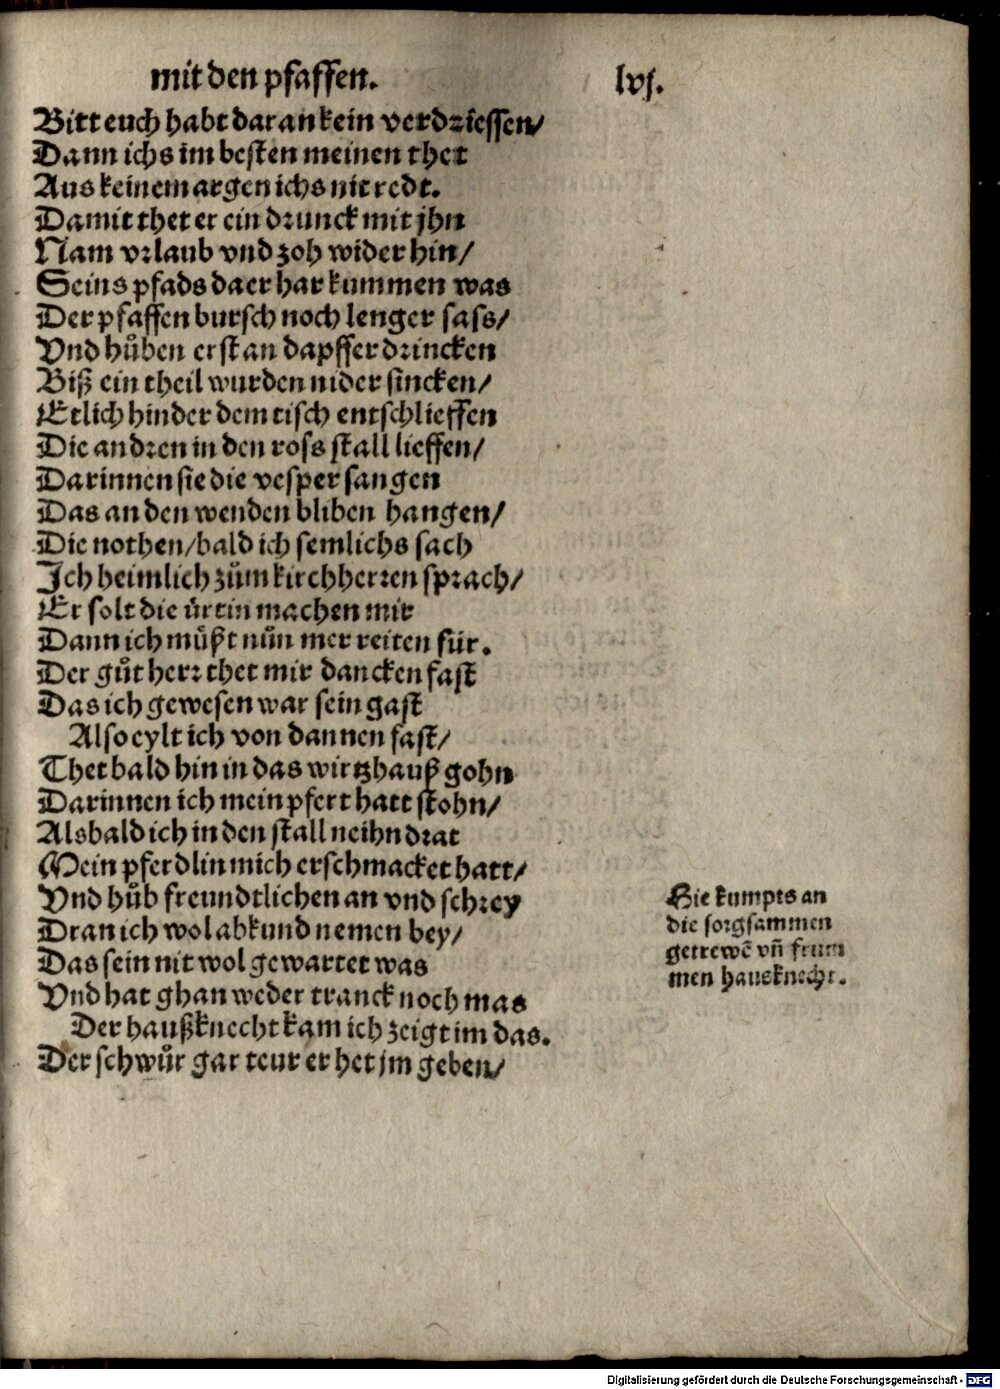 mit den pfaffen.
lvj.
Bitt euch habt daran kein verdriessen/
Dann ichs im besten meinen thet
Aus keinem argen ichs nit redt.
Damit thet er ein drunck mit jhn
Nam vrlaub vnd zoh wider hin/
Seins pfads da er har kummen was
Der pfaffen bursch noch lenger sass/
Vnd hůben erst an dapffer drincken
Biß ein theil wurden nider sincken/
Etlich hinder dem tisch entschlieffen
Die andren in den ross stall lieffen/
Darinnen sie die vesper sangen
Das an den wenden bliben hangen/
Die nothen/bald ich semlichs sach
Ich heimlich zům kirchherren sprach/
Er solt die ürtin machen mir
Dann ich můßt nůn mer reiten für.
Der gůt herr thet mir dancken fast
Das ich gewesen war sein gast
Also eylt ich von dannen fast/
Thet bald hin in das wirtzhauß gohn
Darinnen ich mein pfert hatt stohn/
Als bald ich in den stall neihn drat
Mein pferdlin mich erschmacket hatt/
Vnd hůb freundtlichen an vnd schrey
Dran ich wol abkund nemen bey/
Das sein nit wol gewartet was
Vnd hat ghan weder tranck noch mas
Der haußknecht kam ich zeigt im das.
Der schwůr gar teur er het jm geben/
Hie kumpts an
die sorgsammen
getrewē vñ frum
men hausknecht.
Digitalisierung gefördert durch die Deutsche Forschungsgemeinschaft - DFG